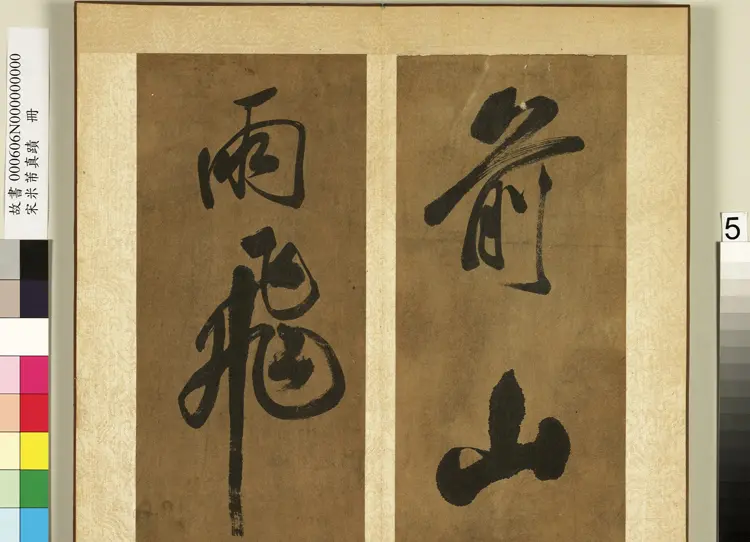 前山
雨飛
故書 000606N000000000
宋米芾真蹟 冊
5